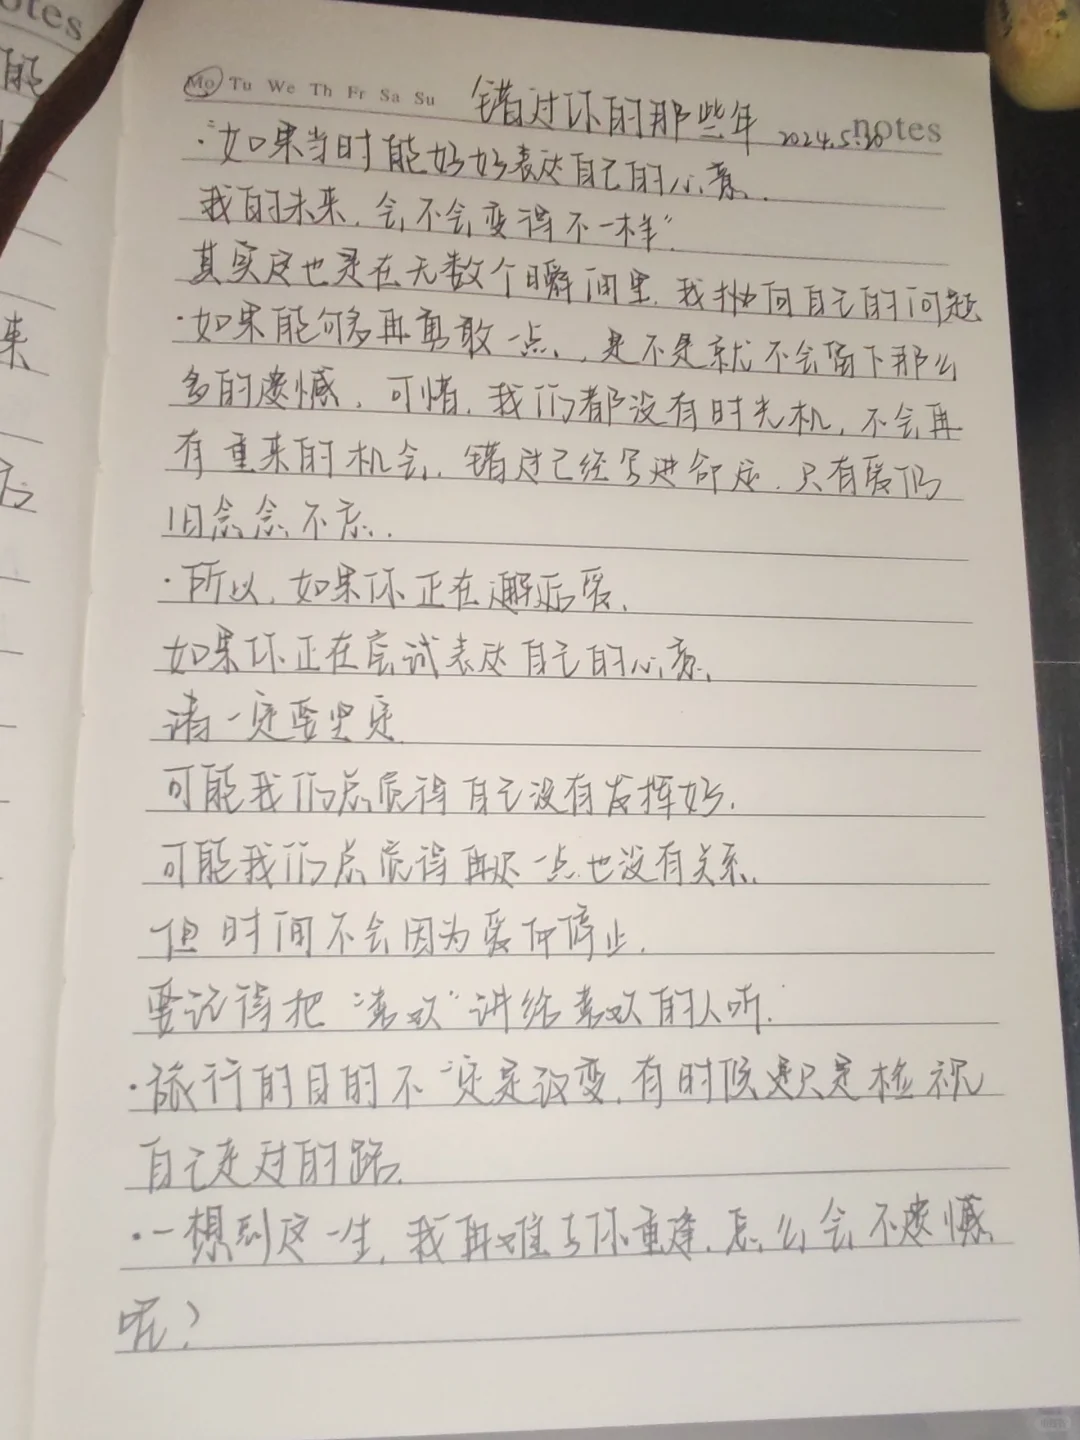 otes
能
来
Mo Tu We Th Fr Sa Su 错过你的那些年 2024.5.20 notes
·"如果当时能好好表达自己的心意,
我的未来,会不会变得不一样"
其实这也是在无数个瞬间里,我抛向自己的问题
·如果能够再勇敢一点,是不是就不会留下那么
多的遗憾,可惜,我们都没有时光机,不会再
有重来的机会,错过已经写进命运,只有爱仍
旧念念不忘.
·所以,如果你正在邂逅爱,
如果你正在尝试表达自己的心意,
请一定要坚定
可能我们总觉得自己没有发挥好,
可能我们总觉得再晚一点也没有关系,
但时间不会因为爱而停止.
要记得把"喜欢"讲给喜欢的人听.
·旅行的目的不一定是改变,有时候是只是检视
自己走过的路.
·一想到这一生,我再难与你重逢,怎么会不遗憾
呢?